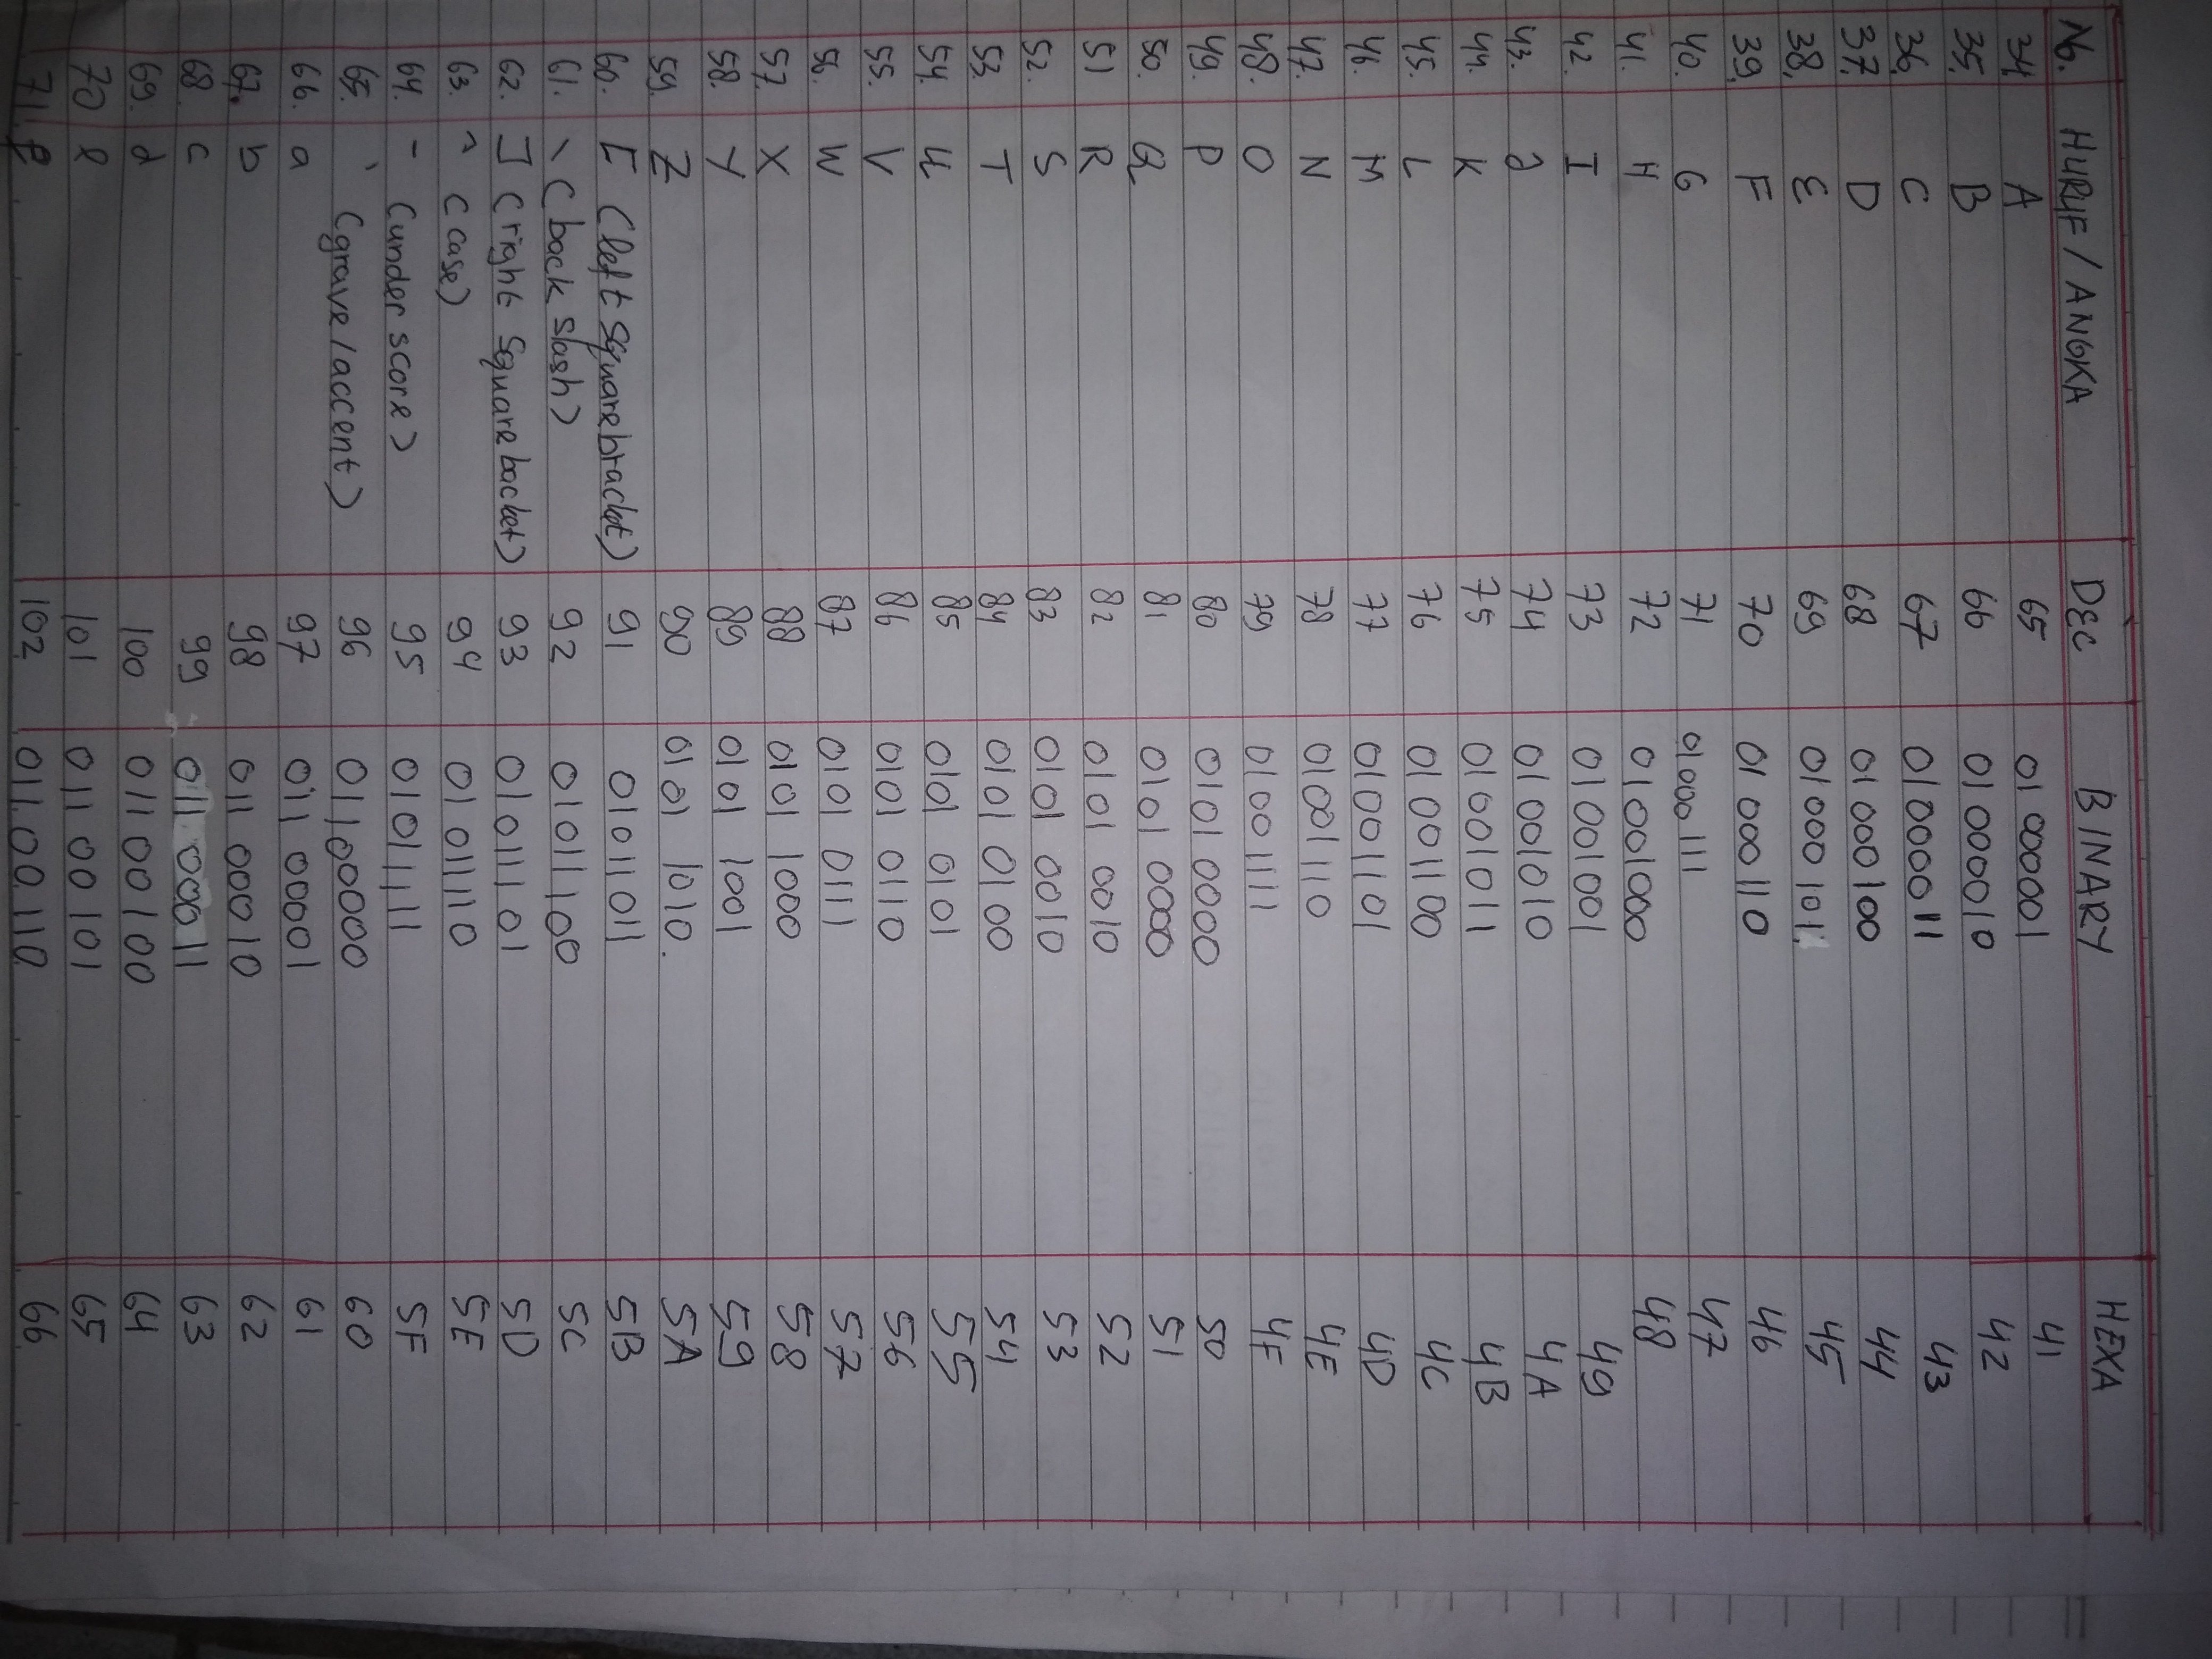 No. HURUF / ANGKA DEC BINARY HEXA
34. A 65 01 000001 41
35. B 66 01 000010 42
36. C 67 01 000011 43
37. D 68 01 000100 44
38. E 69 01 000 101. 45
39. F 70 01 000110 46
40. G 71 01000111 47
41. H 72 01001000 48
42. I 73 01001001 49
43. J 74 01001010 4A
44. K 75 01001011 4B
45. L 76 01001100 4C
46. M 77 01001101 4D
47. N 78 01001110 4E
48. O 79 01001111 4F
49. P 80 0101 0000 50
50. Q 81 0101 0000 51
51 R 82 0101 0010 52
52. S 83 0101 0010 53
53. T 84 0101 0100 54
54. U 85 0101 0101 55
55. V 86 0101 0110 56
56. W 87 0101 0111 57
57. X 88 0101 1000 58
58. Y 89 0101 1001 59
59. Z 90 0101 1010. 5A
60. [ (left square bracket) 91 01011011 5B
61. \ (back slash) 92 01011100 5C
62. ] (right square backet) 93 01011101 5D
63. ^ (case) 94 01011110 5E
64. - (under score) 95 01011111 5F
65. ` (grave/accent) 96 01100000 60
66. a 97 011 00001 61
67. b 98 011 00010 62
68. c 99 011 00011 63
69. d 100 01100100 64
70 e 101 011 00 101 65
71. f 102 011 00 110 66